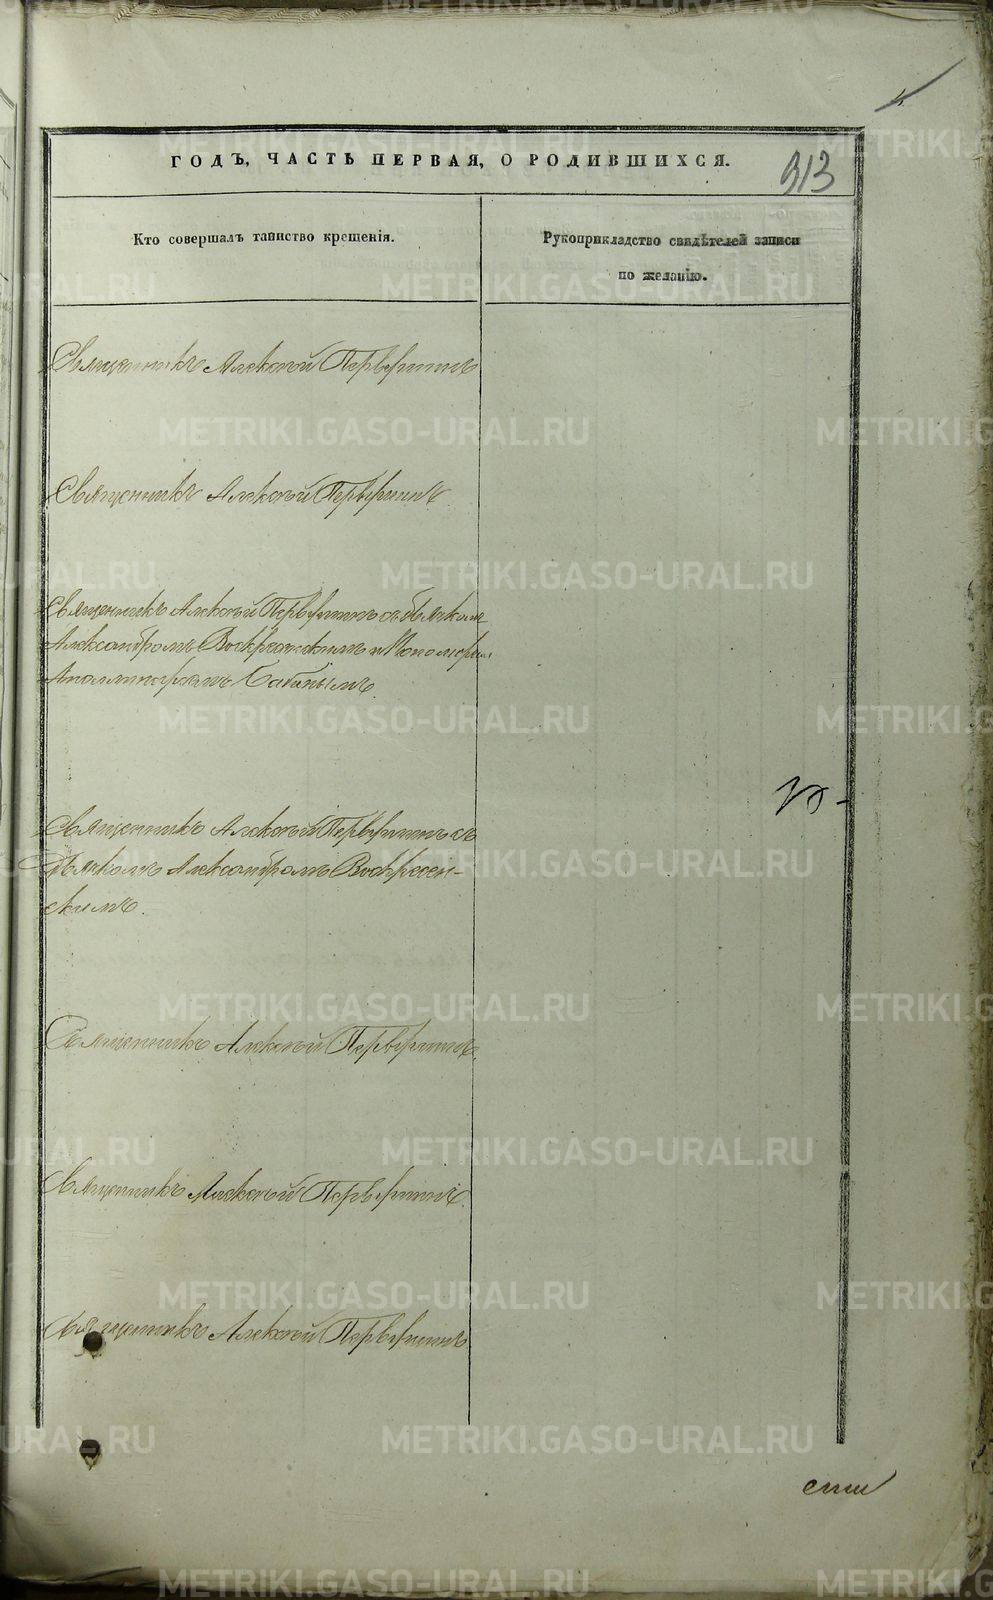 ГОДЪ, ЧАСТЬ ПЕРВАЯ, О РОДИВШИХСЯ.
313
Кто совершалъ таинство крещенія.
Рукоприкладство свидѣтелей записи
по желанію.
Священникъ Алексѣй Первушинъ
Священникъ Алексѣй Первушинъ
Священникъ Алексѣй Первушинъ съ дьякомъ
Александромъ Воскресенскимъ и Пономаремъ
Аполлинаріемъ Бабинымъ.
Священникъ Алексѣй Первушинъ съ
Дьякомъ Александромъ Воскресен-
скимъ.
Священникъ Алексѣй Первушинъ.
Священникъ Алексѣй Первушинъ.
Священникъ Алексѣй Первушинъ
METRIKI.GASO-URAL.RU